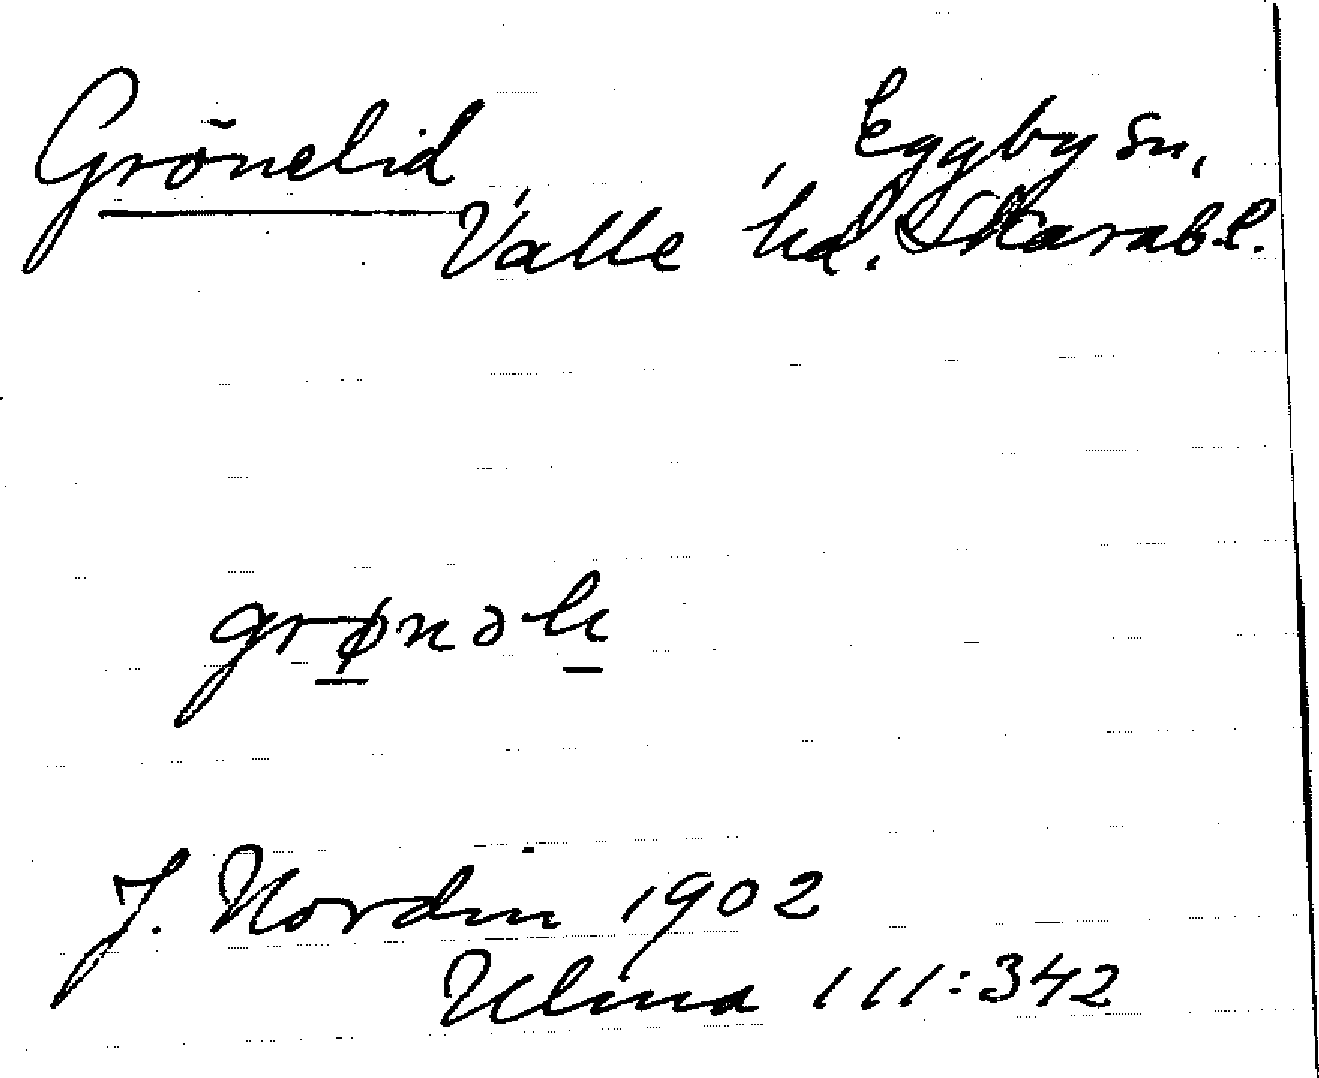 Grönelid
Eggby sn,
Valle hd. Skarab.l.
grønəli
J. Nordin 1902
Ulma 111:342